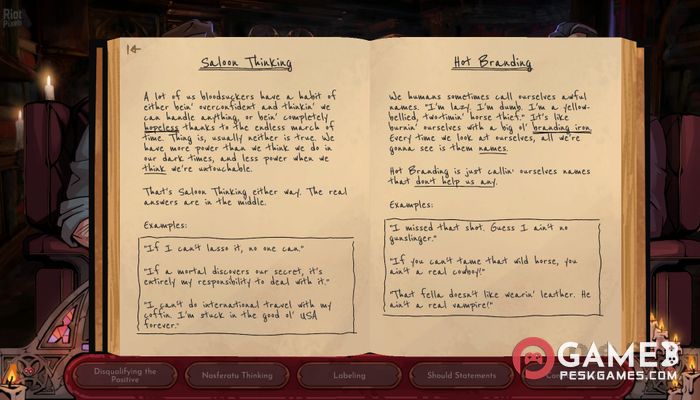 Riot
Pixels
Saloon Thinking
A lot of us bloodsuckers have a habit of
either bein' overconfident and thinkin' we
can handle anything, or bein' completely
hopeless thanks to the endless march of
time. Thing is, usually neither is true. We
have more power than we think we do in
our dark times, and less power when we
think we're untouchable.
That's Saloon Thinking either way. The real
answers are in the middle.
Examples:
"If I can't lasso it, no one can."
"If a mortal discovers our secret, it's
entirely my responsibility to deal with it."
"I can't do international travel with my
coffin. I'm stuck in the good ol' USA
forever."
Hot Branding
We humans sometimes call ourselves awful
names. "I'm lazy. I'm dumb. I'm a yellow-
bellied, two-timin' horse thief." It's like
burnin' ourselves with a big ol' branding iron.
Every time we look at ourselves, all we're
gonna see is them names.
Hot Branding is just callin' ourselves names
that don't help us any.
Examples:
"I missed that shot. Guess I ain't no
gunslinger."
"If you can't tame that wild horse, you
ain't a real cowboy!"
"That fella doesn't like wearin' leather. He
ain't a real vampire!"
Disqualifying the
Positive
Nosferatu Thinking
Labeling
Should Statements
GAME
PESKGAMES.COM